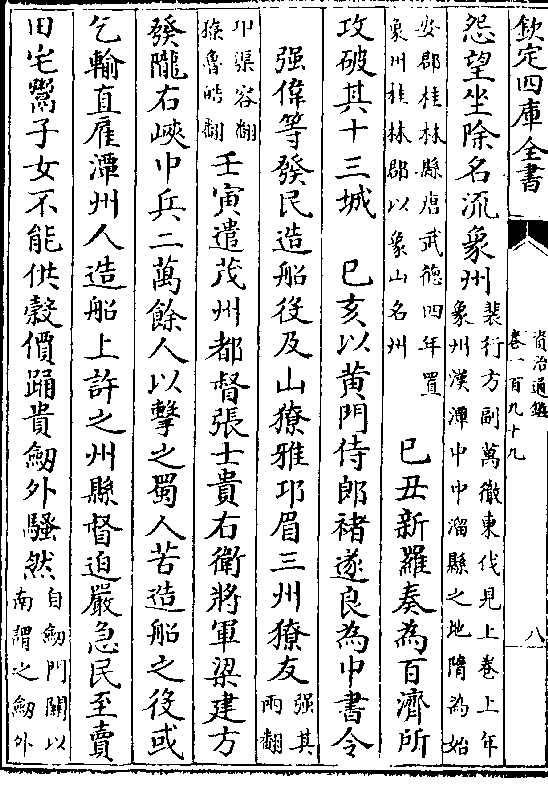 欽定四庫全書
資治通鑑
卷一百九十九
八
怨望坐除名流象州裴行方副萬徹東伐見上卷上年
象州漢潭中中溜縣之地隋為始
安郡桂林縣唐武徳四年置
象州桂林郡以象山名州
己丑新羅奏為百濟所
攻破其十三城　己亥以黄門侍郎禇遂良為中書令
强偉等發民造船役及山獠雅邛眉三州獠友强其
兩翻
邛渠容翻
獠魯皓翻
壬寅遣茂州都督張士貴右衛將軍梁建方
發隴右峽中兵二萬餘人以擊之蜀人苦造船之役或
乞輸直雇潭州人造船上許之州縣督迫嚴急民至賣
田宅鬻子女不能供穀價踊貴劔外騷然自劔門關以
南謂之劔外